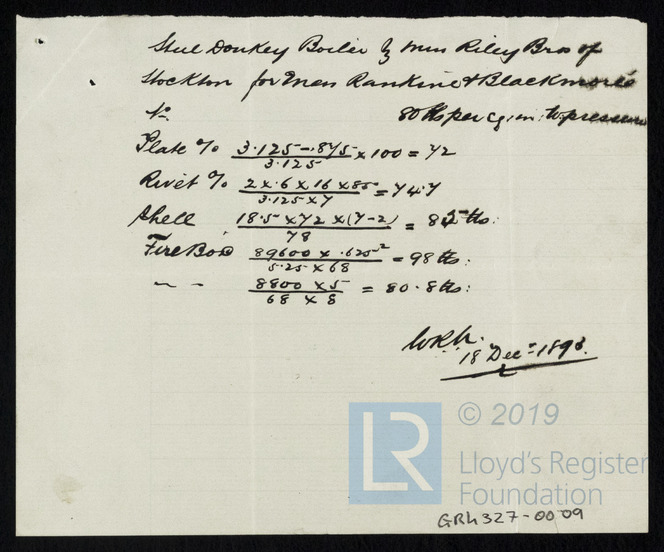 Steel Donkey Boiler by Mess Riley Bros of
Stockton for Mess Rankine & Blackmore's
No. 80 lbs per sq in: wpressure
Plate % 3.125-.875/3.125 x 100 = 72
Rivet % 2 x .6 x 16 x 85/3.125 x 7 = 74.7
Shell 18.5 x 72 x (7-2)/78 = 85 lbs:
Fire Box 89600 x .625²/5.25 x 68 = 98 lbs:
~ ~ 8800 x 5/68 x 8 = 80.8 lbs:
18 Dec 1893.
LR
© 2019
Lloyd's Register
Foundation
GRK327-0009